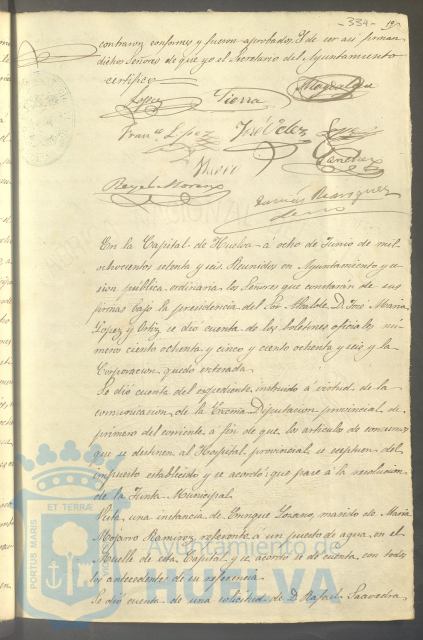 -334- 190
contraron conformes y fueron aprobados. Y de ser asi firman
dichos Señores de que yo el Secretario del Ayuntamiento
certifico
Lopez Sierra
Franco Lopez José Velez
Sanchez
Rafael Moreno
Tomás Rodriguez
En la Capital de Huelva á ocho de Junio de mil
ochocientos setenta y seis. Reunidos en Ayuntamiento y se-
sion publica ordinaria los Señores que constarán de sus
firmas bajo la presidencia del Sor. Alcalde D. José Maria
Lopez y Ortiz se dió cuenta de los boletines oficiales nú-
mero ciento ochenta y cinco y ciento ochenta y seis y la
Corporacion quedó enterada
Se dió cuenta del expediente instruido á virtud de la
comunicacion de la Excma. Diputacion provincial de
primero del corriente á fin de que los articulos de consumo
que se destinen al Hospital provincial se esceptuen del
impuesto establecido y se acordó: que pase á la resolucion
de la Junta Municipal.
Vista una instancia de Enrique Lozano, marido de Maria
Mojarro Ramirez referente á un puesto de agua en el
Muelle de esta Capital y se acordó se dé cuenta con todos
los antecedentes de su referencia
Se dió cuenta de una solicitud de D. Rafael Saavedra,
ET TERRÆ
PORTUS MARIS
Ayuntamiento de
HUELVA